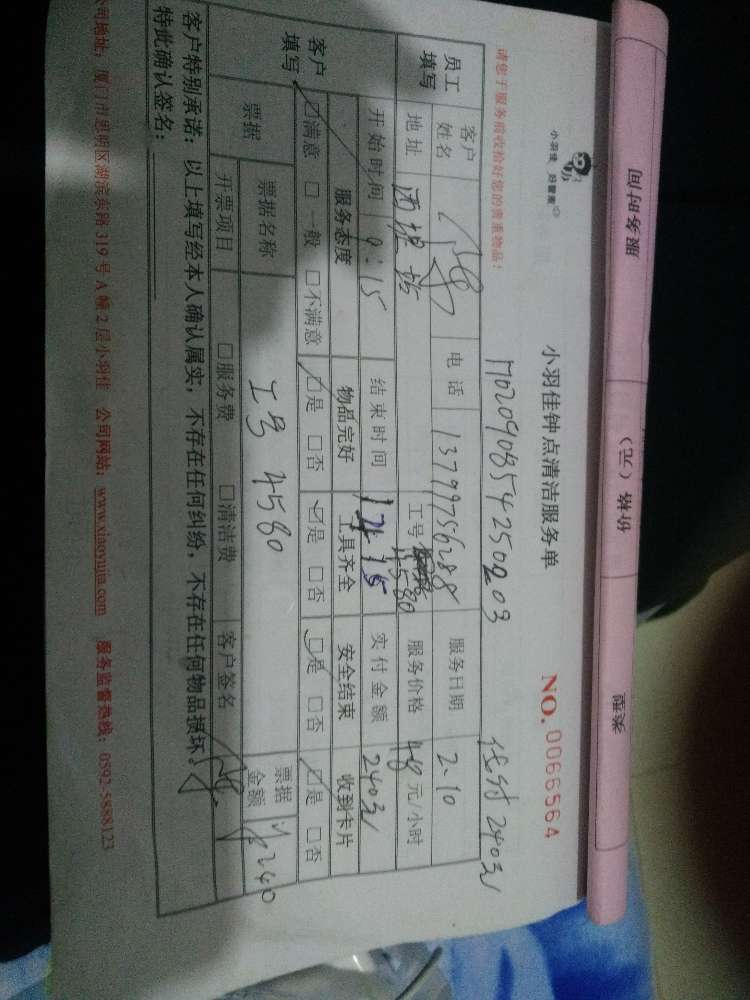 服务时间 价格（元） 家庭
小羽佳 好管家
小羽佳钟点清洁服务单 NO. 0066564
请您于服务前收拾好您的贵重物品！
H02090854250203 优付240元
员工填写 客户姓名 电话 13799756288 服务日期 2.10
地址 西堤站 工号 4580 服务价格 48 元/小时
开始时间 9:15 结束时间 15 实付金额 240元
客户填写 服务态度 物品完好 工具齐全 安全结束 收到卡片
□满意 □一般 □不满意 □是 □否 □是 □否 □是 □否 □是 □否
票据 票据名称 工号 4580 票据金额 240
开票项目 □服务费 □清洁费 客户签名
客户特别承诺：以上填写经本人确认属实，不存在任何纠纷，不存在任何物品损坏。
特此确认签名：
公司地址：厦门市思明区湖滨东路 319 号 A 幢 2 层小羽佳 公司网站：www.xiaoyujia.com 服务监督热线：0592-5888123